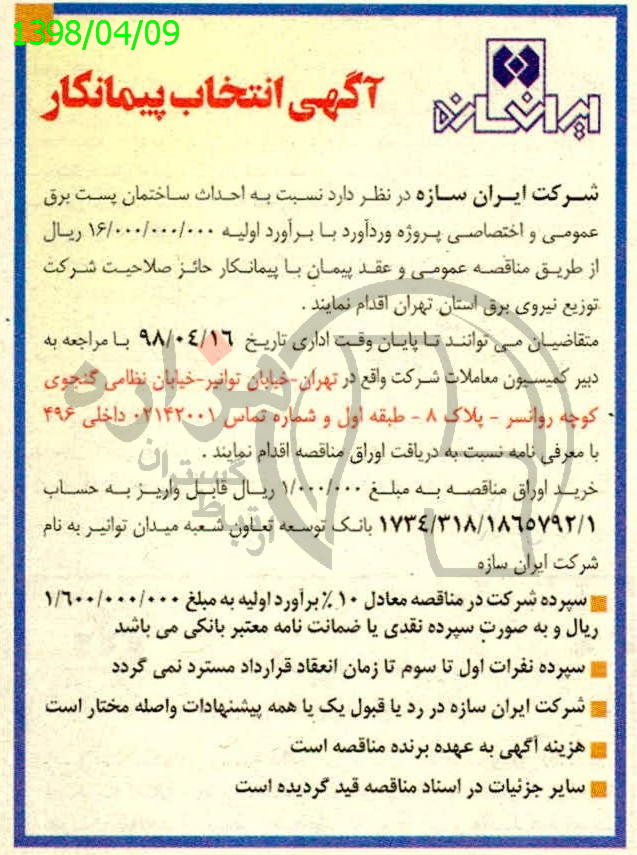 1398/04/09
ایران سازه
آگهی انتخاب پیمانکار
شرکت ایران سازه در نظر دارد نسبت به احداث ساختمان پست برق
عمومی و اختصاصی پروژه وردآورد با برآورد اولیه ۱۶/۰۰۰/۰۰۰/۰۰۰ ریال
از طریق مناقصه عمومی و عقد پیمان با پیمانکار حائز صلاحیت شرکت
توزیع نیروی برق استان تهران اقدام نمایند .
متقاضیان می توانند تا پایان وقت اداری تاریخ ۹۸/۰٤/۱٦ با مراجعه به
دبیر کمیسیون معاملات شرکت واقع در تهران-خیابان توانیر-خیابان نظامی گنجوی
کوچه روانسر - پلاک ۸ - طبقه اول و شماره تماس ۰۲۱۴۲۰۰۱ داخلی ۴۹۶
با معرفی نامه نسبت به دریافت اوراق مناقصه اقدام نمایند .
خرید اوراق مناقصه به مبلغ ۱/۰۰۰/۰۰۰ ریال قابل واریز به حساب
۱۷۳٤/۳۱۸/۱۸٦٥۷۹۲/۱ بانک توسعه تعاون شعبه میدان توانیر به نام
شرکت ایران سازه
سپرده شرکت در مناقصه معادل ۱۰ ٪ برآورد اولیه به مبلغ ۱/۶۰۰/۰۰۰/۰۰۰
ریال و به صورت سپرده نقدی یا ضمانت نامه معتبر بانکی می باشد
سپرده نفرات اول تا سوم تا زمان انعقاد قرارداد مسترد نمی گردد
شرکت ایران سازه در رد یا قبول یک یا همه پیشنهادات واصله مختار است
هزینه آگهی به عهده برنده مناقصه است
سایر جزئیات در اسناد مناقصه قید گردیده است
هزاره
گستران
ارتباط